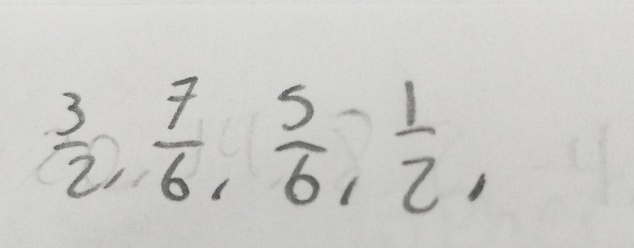 3/2, 7/6, 5/6, 1/2,